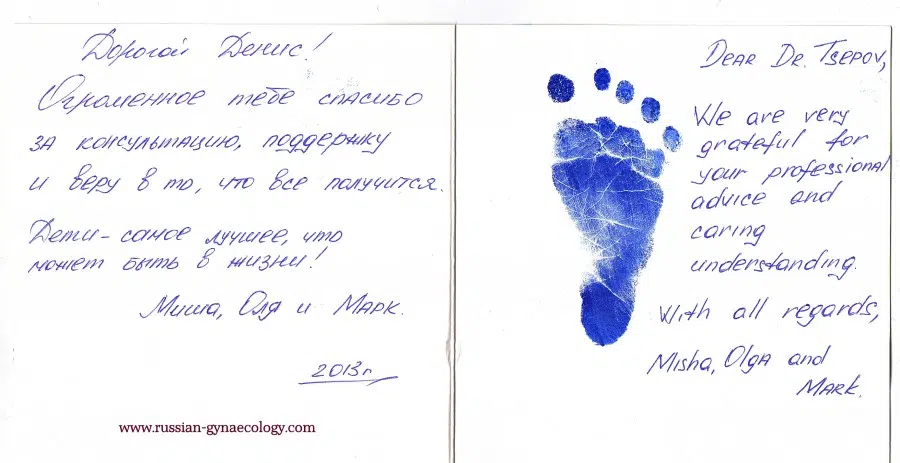 Дорогой Денис!
Огроменное тебе спасибо
за консультацию, поддержку
и веру в то, что все получится.
Дети - самое лучшее, что
может быть в жизни!
Миша, Оля и Марк.
2013г.
www.russian-gynaecology.com
Dear Dr. Tsepov,
We are very
grateful for
your professional
advice and
caring
understanding.
With all regards,
Misha, Olga and
Mark.